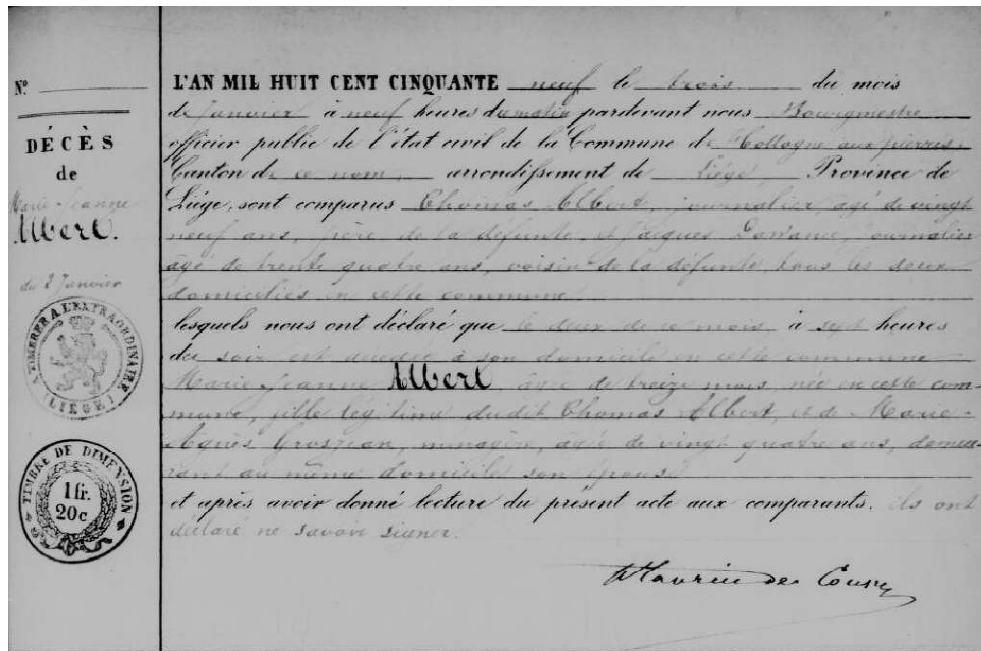 N.º
DÉCÈS
de
Marie-Jeanne
Albert.
du 2 Janvier
A TIMBRER A L'EXTRAORDINAIRE
(LIÉGE)
TIMBRE DE DIMENSION
1 fr.
20 c
L'AN MIL HUIT CENT CINQUANTE neuf le trois du mois
de Janvier à neuf heures du matin pardevant nous Bourgmestre
officier public de l'état civil de la Commune de Hollogne aux pierres
Canton de ce nom, arrondissement de Liége, Province de
Liége, sont comparus Thomas Albert, journalier, agé de vingt
neuf ans, père de la défunte et Jacques journalier
âgé de trente quatre ans, voisin de la défunte, tous les deux
domiciliés en cette commune
lesquels nous ont déclaré que le deux de ce mois, à sept heures
du soir est décédée à son domicile en cette commune
Marie Jeanne Albert âgée de treize mois, née en cette com-
mune, fille légitime dudit Thomas Albert, et de Marie-
Agnès Grosjean, ménagère, âgée de vingt quatre ans, demeu-
rant au même domicile son épouse
et après avoir donné lecture du présent acte aux comparants, ils ont
déclaré ne savoir signer.
de